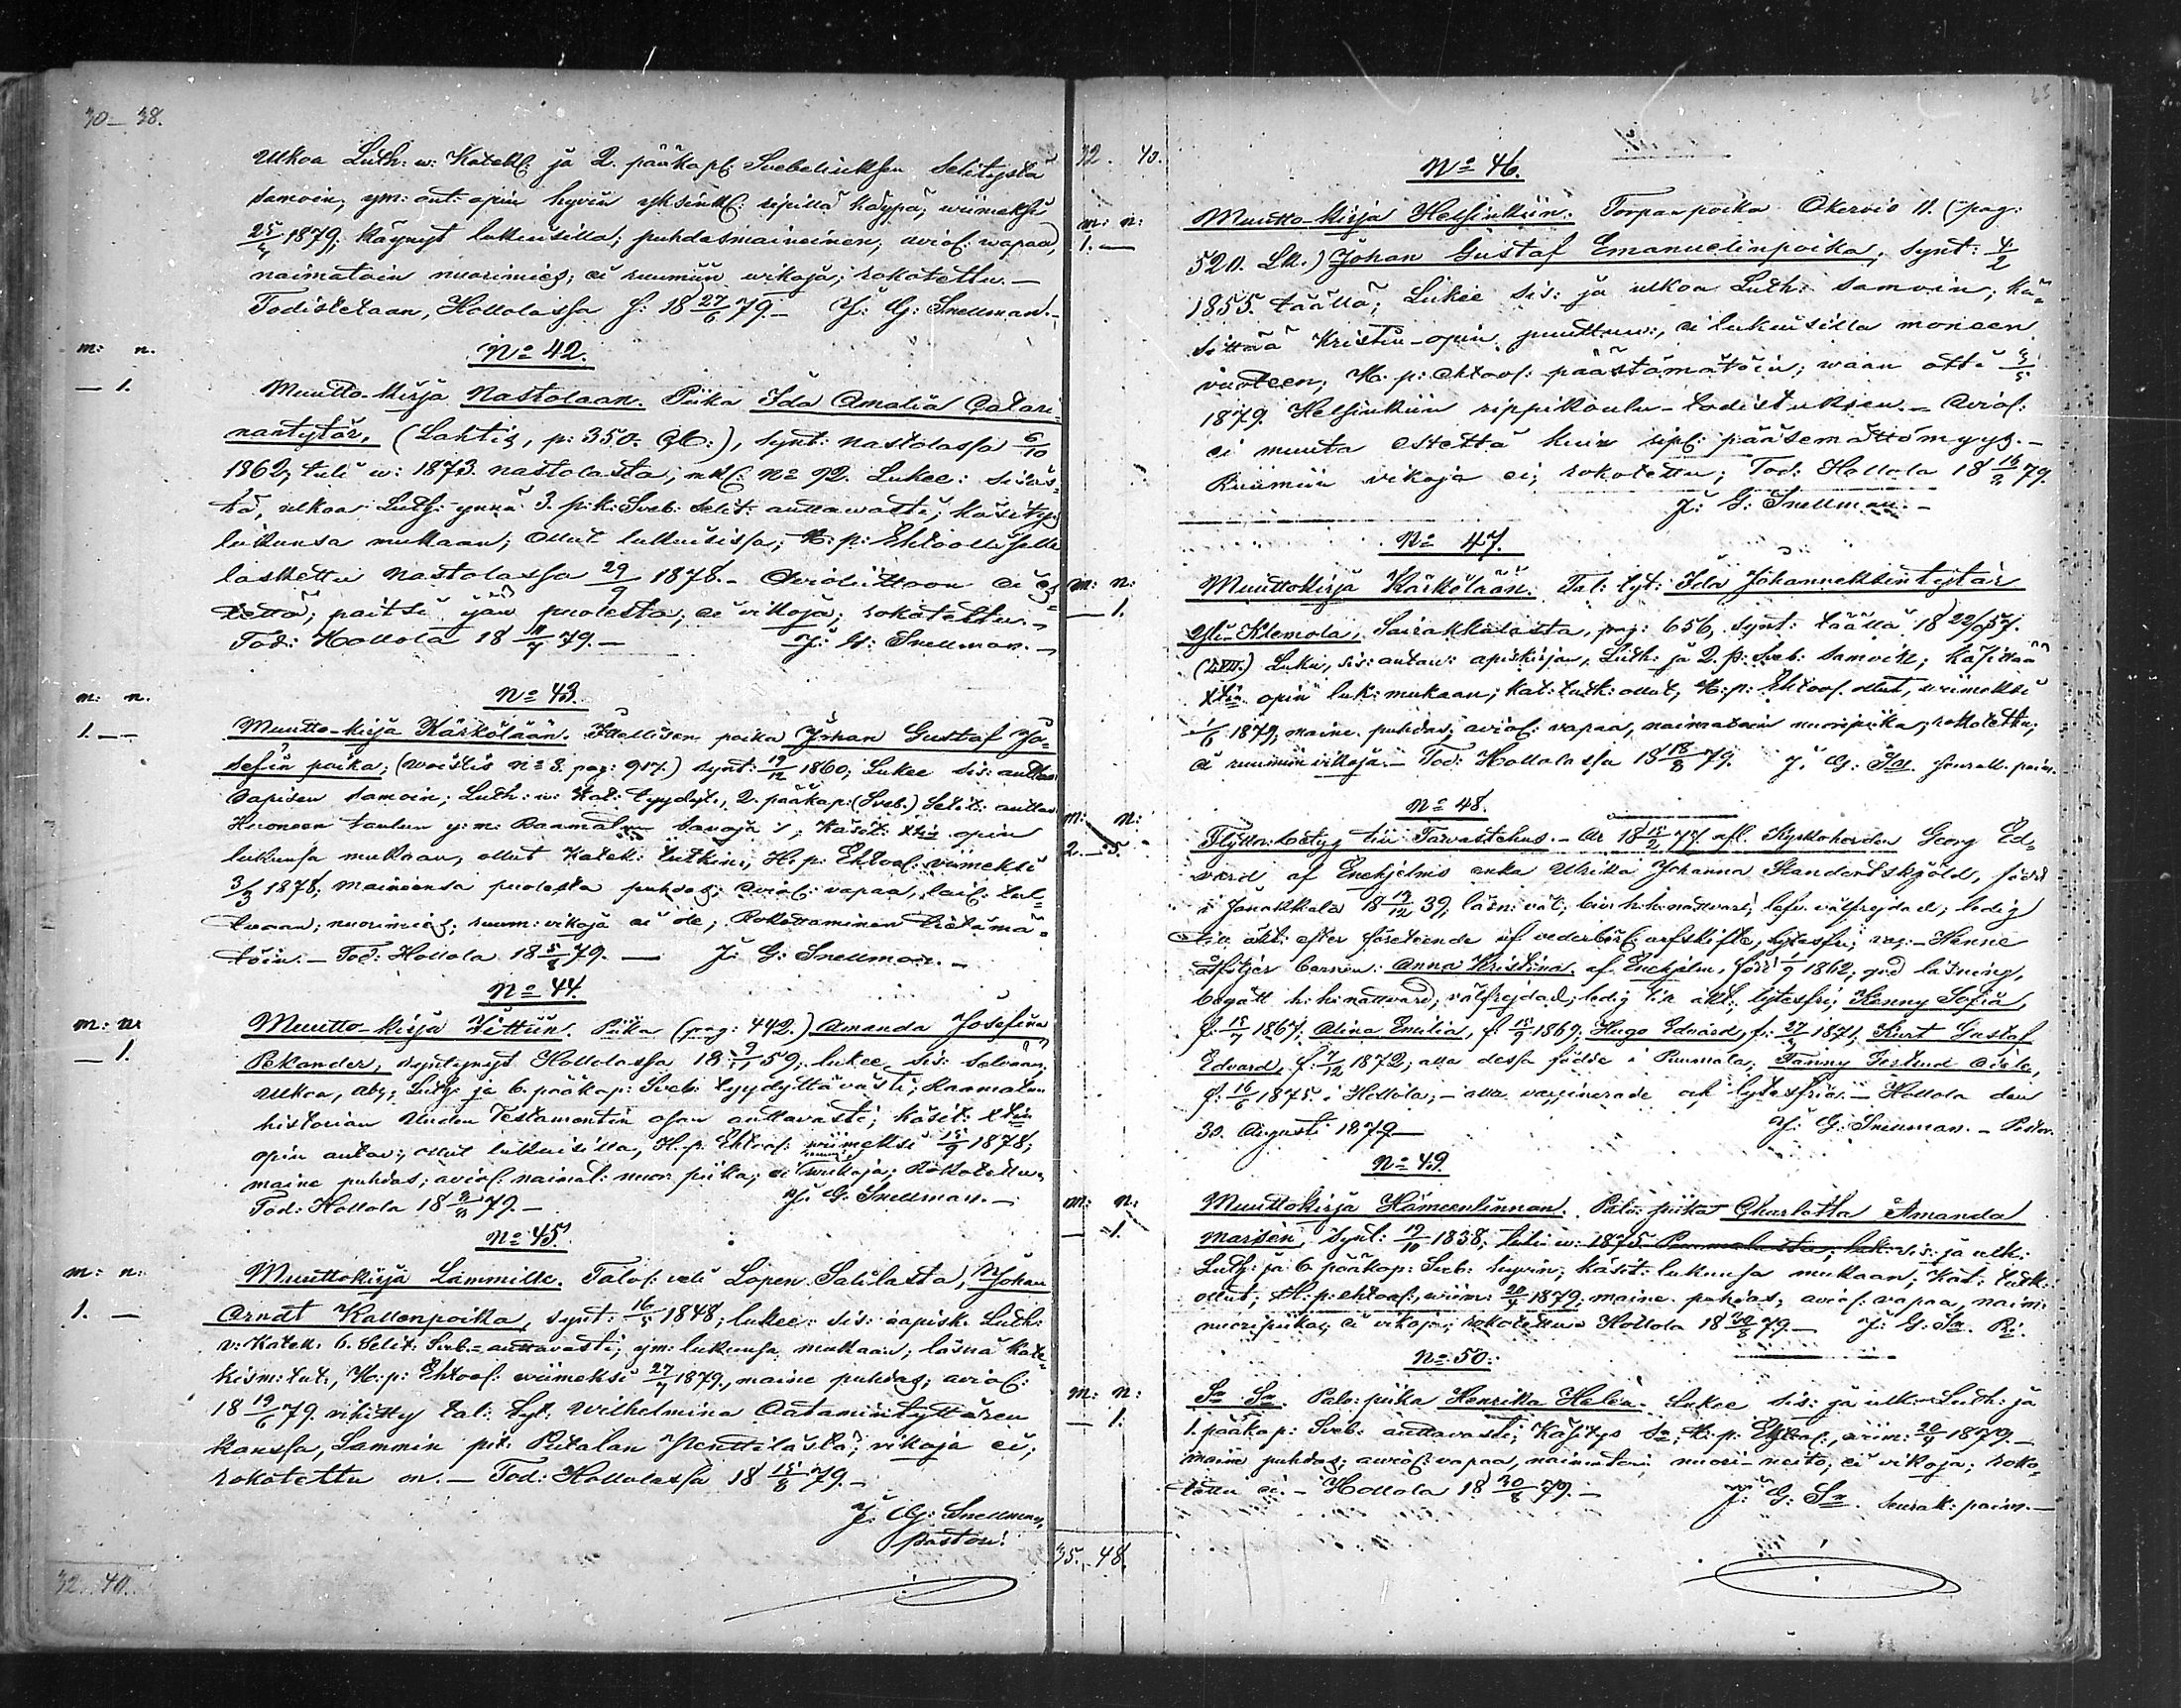 30 — 38.
uskoa Luth: w: Katek: ja 2. pääkapl: Svebeliuksen Selitystä
samoin; ym: ant: opin hyvin yksinkl: ripillä käypä, wiimeksi
1879; käynyt lukusilla; puhdasmaineinen, aviol: wapaa,
naimatoin nuorimies; ei ruumiin wikoja; rokotettu. —
Todistetaan, Hollolassa J: 18 27/6 79. — J: G: Snellman. —
m: n.
No 42.
— 1.
Muutto-kirja Nastolaan. Piika Ida Amalia Catari-
nantytär, (Lahtis, p: 350. ), synt: Nastolassa 6/10
1862; tuli w: 1873 Nastolasta, mkl: No 92. Lukee: sisäs-
tä, ulkoa Luth: ynnä 3. p:k: Sveb: Selit: auttawasti; käsitys
lukunsa mukaan; ollut lukusissa; H: p: Ehtoolliselle
laskettu Nastolassa 29/9 1878. — Avioliittoon ei es-
tettä, paitsi iän puolesta; ei vikoja; rokotettu. —
Tod: Hollola 18 79. — J: G: Snellman. —
m: n.
No 43.
1. —
Muutto-kirja Kärkölään. Itsellisen poika Johan Gustaf Jo-
sefin poika; (Woistis No 3. pag: 917.) synt: 19/12 1860; Lukee sis: auttav.
aapisen samoin; Luth: w: Kat: tyydytt., 2. pääkap: (Sveb.) Selit: auttav
Huoneen taulun y: m: Raamatun sanoja; Käsit: Xtin opin
lukunsa mukaan, ollut Katek: tutkin:, H: p: Ehtool: viimeksi
3/3 1878; maineensa puolesta puhdas; aviol: vapaa, lail: tul-
tuaan; nuorimies; ruum: vikoja ei ole; Rokottaminen tietämä-
töin. — Tod: Hollola 18 79. — J: G: Snellman. —
No 44.
m: n:
— 1.
Muutto-kirja Iittiin. Piika (pag: 442.) Amanda Josefina
Pekander, syntynyt Hollolassa 18 59; lukee sis: selvään,
ulkoa, Luth: ja 6. pääkap: Sveb: tyydyttävästi; Raamatun
historian Uuden Testamentin osan auttavasti; käsit: Xtin
opin auttav:, ollut lukusilla, H: p: Ehtool: viimeksi 15/9 1878;
maine puhdas; aviol: naimat: nuor: piika; ei vikoja; Rokotettu.
Tod: Hollola 18 8/8 79. — J: G: Snellman. —
No 45.
m: n:
1. —
Muuttokirja Lammille. Talol: veli Lopen Salilasta, Johan
Arndt Kallenpoika, synt: 1848; lukee: sis: aapisk: Luth:
v: Katek: 6. Selit: Sveb: auttavasti; ym: lukunsa mukaan; läsnä Kate-
kism: tut:, H: p: Ehtool: viimeksi 1879., maine puhdas; aviol:
18 19/6 79. vihitty tal: tyt: Wilhelmina Aatamintyttären
kanssa, Lammin pit: Putalan Penttilästä; vikoja ei;
rokotettu on. — Tod: Hollolassa 18 15/8 79. —
J. G: Snellman,
Pastori.
32. 40.
63
32. 40.
No 46.
m: n:
1. —
Muutto-kirja Helsinkiin. Torpan poika Okervis 11. (pag:
520. Lk.) Johan Gustaf Emanuelinpoika, synt: 4/2
1855. täällä; Lukee sis: ja ulkoa Luth: samoin; kä-
sittää Kristin-opin puuttuv:, ei lukusilla moneen
vuoteen, H: p: Ehtool: päästämätöin; waan otti
1879. Helsinkiin rippikoulu-todistuksen. — Aviol:
ei muuta estettä kuin ripl: pääsemättömyys. —
Ruumiin vikoja ei; rokotettu; Tod: Hollola 18 16/8 79.
J: G: Snellman. —
No 47.
m: n:
— 1.
Muuttokirja Kärkölään. Tal: tyt: Ida Johanneksentytär
Yli-Klemola, Sairakkalasta, pag: 656, synt: täällä 18 57.
Luku, sis: auttav: apiskirjan, Luth: ja 2. p: Sveb: samoin; käsittää
Xtin opin luk: mukaan; kat: tutk: ollut, H: p: Ehtool. ollut, wiimeksi
1/6 1879; maine puhdas; aviol: vapaa, naimatoin nuoripiika; rokotettu;
ei ruumiin vikoja. — Tod: Hollolassa 18 18/8 79. J. G: Sn. seurak. paim.
No 48.
m: n:
2. — 5.
Flyttn: betyg till Tavastehus. — Ar 18 15/2 77 afl. Kyrkoherden Georg Ed-
vard af Enehjelms enka Ulrika Johanna Standertskjöld, född
i Janakkala 18 19/12 39; läsn: väl; h: h: nattvard, lefv: välfrejdad; ledig
till äkt: efter företeende af vederbörl: arfskifte, lytesfri; vac: — Henne
åtföljer barnen: Anna Kristina af Enehjelm, född 1/9 1862; god läsning,
begått h: h: nattvard, välfrejdad; ledig till äkt:, lytesfri; Jenny Sofia,
f: 1867; Alina Emilia, f: 1869; Hugo Edvard, f: 1871; Kurt Gustaf
Edvard, f: 7/12 1872; alla dessa födde i Puumala; Fanny Aisla,
f: 16/6 1875 i Hollola; — alla vaccinerade och lytesfria. — Hollola den
30. Augusti 1879 — J: G: Snellman. — Pastor.
No 49.
m: n:
— 1.
Muuttokirja Hämeenlinnan. Palv: piika Charlotta Amanda
Marsen, synt: 19/10 1838; tuli w: 1875 Puumalasta; luk: sis: ja ulk:
Luth: ja 6 pääkap: Sveb: hyvin; käsit: lukunsa mukaan; Kat: tutk:
ollut; H: p: ehtool:, wiim: 20/4 1879; maine puhdas, aviol: vapaa, naim:
nuoripiika; ei vikoja; rokotettu Hollola 18 30/8 79. — J: G: Sn.
No 50:
m: n:
— 1.
Sn Sn. Palv: piika Henrika Helen. Lukee sis: ja ulk: Luth: ja
1. pääkap: Sveb: auttavasti; Käsitys Sn; H: p: Ehtool:, wiim: 20/4 1879. —
maine puhdas; aviol: vapaa, naimatoin nuori-neito; ei vikoja; roko-
tettu ei. — Hollola 18 30/8 79. — J: G: Sn. seurak: paim. —
35. 48.